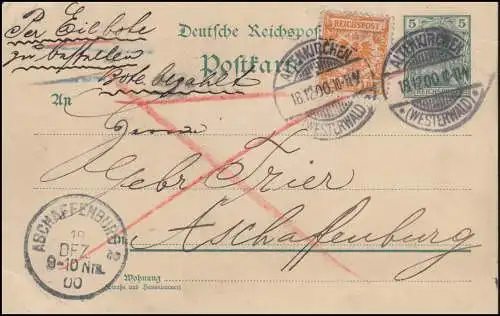 Per Eilbote
zu bestellen
Bote bezahlt
Deutsche Reichspost
Postkarte
REICHSPOST
5 5
ALTENKIRCHEN
18.12.00.10-11V.
(WESTERWALD)
ALTENKIRCHEN
18.12.00.10-11V.
* (WESTERWALD) *
An
Herren
Gebr Trier
in
Aschaffenburg
ASCHAFFENBURG 2
18
DEZ
9-10 Nm.
00
Wohnung
(Straße und Hausnummer)